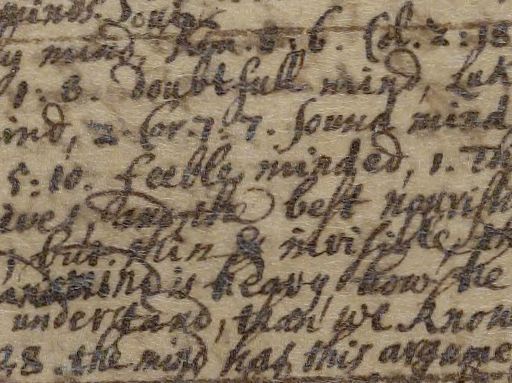 minds. Doubt
y mind, Rom. 8: 6. Col. 2: 18
1: 8. Doubtfull mind, Luk
ind, 2. Cor. 7: 7. sound mind
5: 10. feeble minded, 1. Th
the best nourish
but thin & invisible,
mind is heavy how the
understand, than we know
28 the mind has this argume